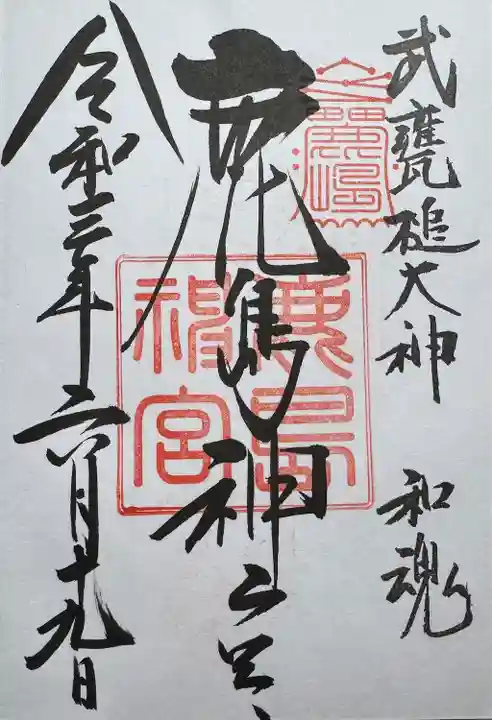 武甕槌大神 和魂
鹿島神宮
鹿島
神宮
令和三年六月十九日